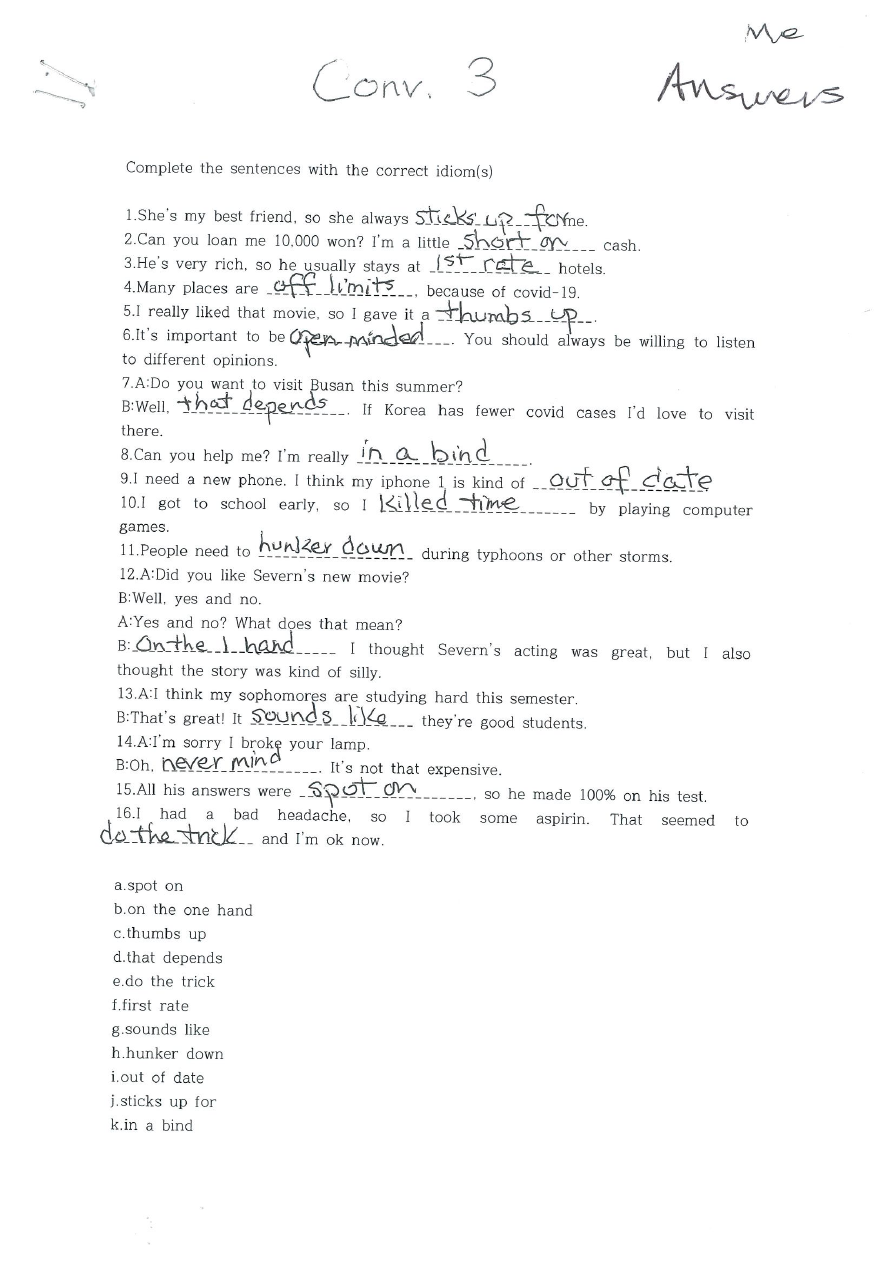 Me
Conv. 3
Answers
Complete the sentences with the correct idiom(s)
1.She's my best friend, so she always sticks up for me.
2.Can you loan me 10,000 won? I'm a little short on cash.
3.He's very rich, so he usually stays at 1st rate hotels.
4.Many places are off limits, because of covid-19.
5.I really liked that movie, so I gave it a thumbs up.
6.It's important to be open minded. You should always be willing to listen
to different opinions.
7.A:Do you want to visit Busan this summer?
B:Well, that depends. If Korea has fewer covid cases I'd love to visit
there.
8.Can you help me? I'm really in a bind.
9.I need a new phone. I think my iphone 1 is kind of out of date
10.I got to school early, so I killed time by playing computer
games.
11.People need to hunker down during typhoons or other storms.
12.A:Did you like Severn's new movie?
B:Well, yes and no.
A:Yes and no? What does that mean?
B:On the 1 hand I thought Severn's acting was great, but I also
thought the story was kind of silly.
13.A:I think my sophomores are studying hard this semester.
B:That's great! It sounds like they're good students.
14.A:I'm sorry I broke your lamp.
B:Oh, never mind. It's not that expensive.
15.All his answers were spot on, so he made 100% on his test.
16.I had a bad headache, so I took some aspirin. That seemed to
do the trick and I'm ok now.
a.spot on
b.on the one hand
c.thumbs up
d.that depends
e.do the trick
f.first rate
g.sounds like
h.hunker down
i.out of date
j.sticks up for
k.in a bind